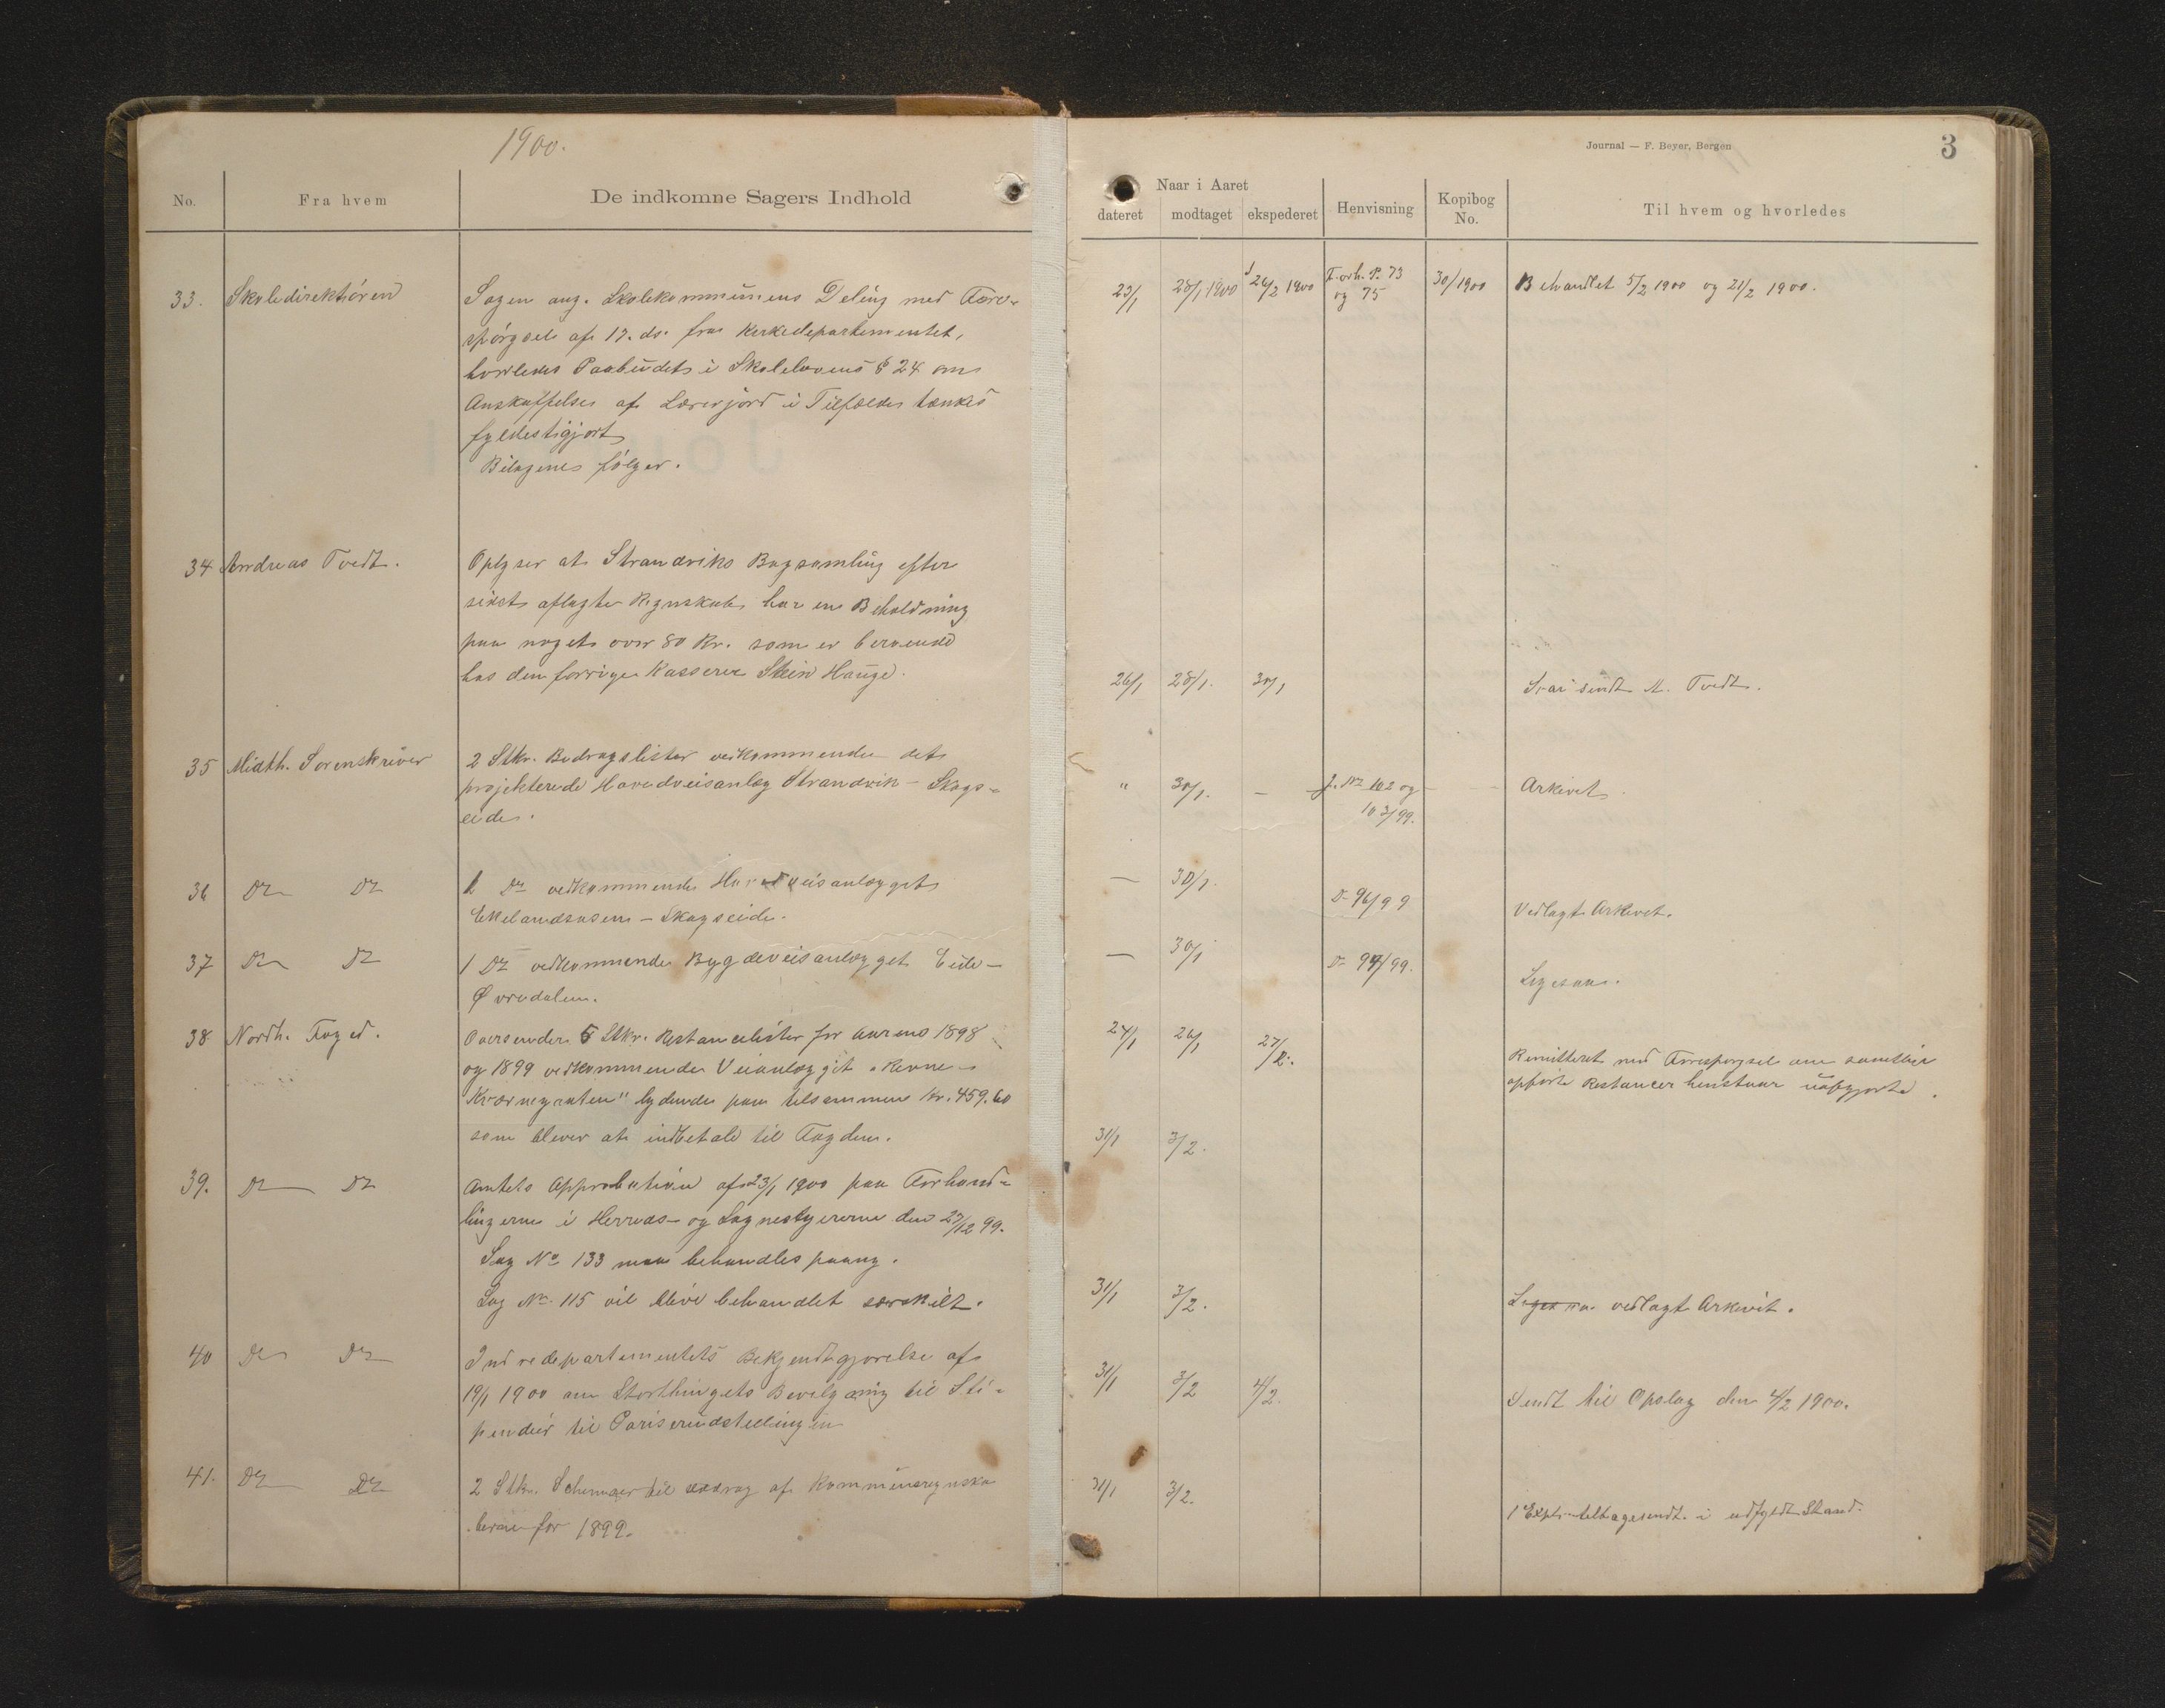 1900.
No. Fra hvem De indkomne Sagers Indhold
33. Skoledirektören Sagen ang. Skolekommunens Deling med Fore-
spörgsel af 17. ds. fra Kirkedepartementet,
hvorledes Paabudet i Skolelovens § 24 om
Anskaffelse af Lærerjord i Tilfælde tænkes
fyldestgjort
Bilagene fölger.
34 Andreas Tvedt. Oplyser at Strandviks Bogsamling efter
sidst aflagte Regnskab har en Beholdning
paa noget over 80 Kr. som er beroende
hos den forrige Kasserer Stein Hauge.
35 Midth. Sorenskriver 2 Stkr. Bidragslister vedkommende det
projekterede Hovedveisanlæg Strandvik - Skogs-
eide.
36 Do Do 1 Do vedkommende Hovedveisanlægget
Ekelandsosen - Skogseide.
37 Do Do 1 Do vedkommende Bygdeveisanlægget Eide-
Øvredalen.
38 Nordh. Foged. Oversender 5 Stkr. Restancelister for Aarene 1898
og 1899 vedkommende Veianlægget
Kværnegrauten" lydende paa tilsammen Kr. 459.60
som bliver at indbetale til Fogden.
39. Do Do Amtets Approbation af 23/1 1900 paa Forhand-
lingerne i Herreds- og Sognestyrerne den 27/12 99.
Sag No 133 maa behandles paany.
Sag No. 115 vil blive behandlet særskilt.
40 Do Do Indredepartementets Bekjendtgjørelse af
19/1 1900 om Storthingets Bevilgning til Sti-
pendier til Pariserudstillingen
41. Do Do 2 Stkr. Schemaer til uddrag af Kommuneregnska
berne for 1899.
Journal — F. Beyer, Bergen
3
Naar i Aaret
dateret modtaget ekspederet Henvisning Kopibog No. Til hvem og hvorledes
23/1 28/1 1900 26/2 1900 Forh. P. 73 og 75 30/1900 Behandlet 5/2 1900 og 21/2 1900.
26/1 28/1. 30/1 Svar sendt A. Tvedt.
" 30/1. - J. No 102 og Arkivet
103/99.
— 30/1. Do 96/99 Vedlagt Arkivet.
— 30/1 Do 94/99. Ligesaa.
24/1 26/1 27/2. Remitteret med Forespørgsel om samtlige
opførte Restancer henstaar uopgjorte.
31/1 3/2.
31/1 3/2. Ligesaa. vedlagt Arkivet.
31/1 3/2 4/2. Sendt til Opslag den 4/2 1900.
31/1 3/2. 1 Expl. tilbagesendt i udfyldt Stand.